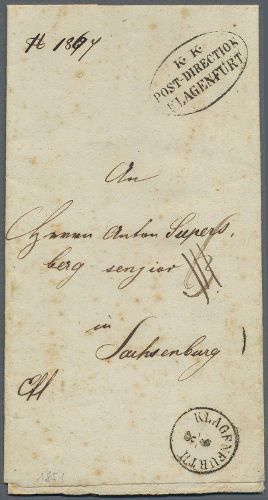 K. K.
POST-DIRECTION
KLAGENFURT
An
Herrn Anton
berg senior
in
Sachsenburg
KLAGENFURT
1851